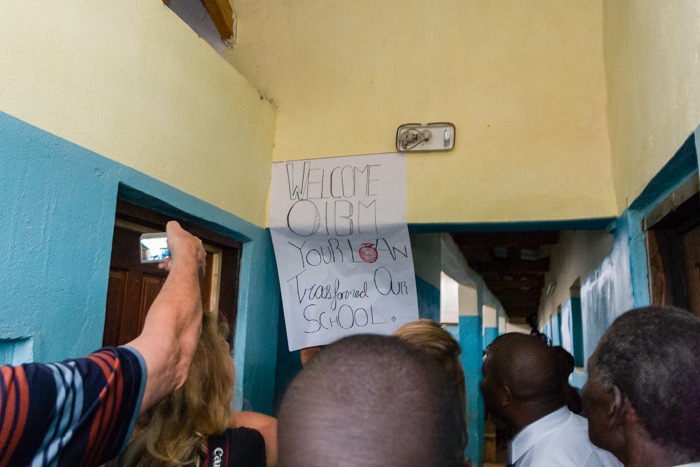 WELCOME
OIBM
YOUR LOAN
Trasformed OUR
SCHOOL.
Canon